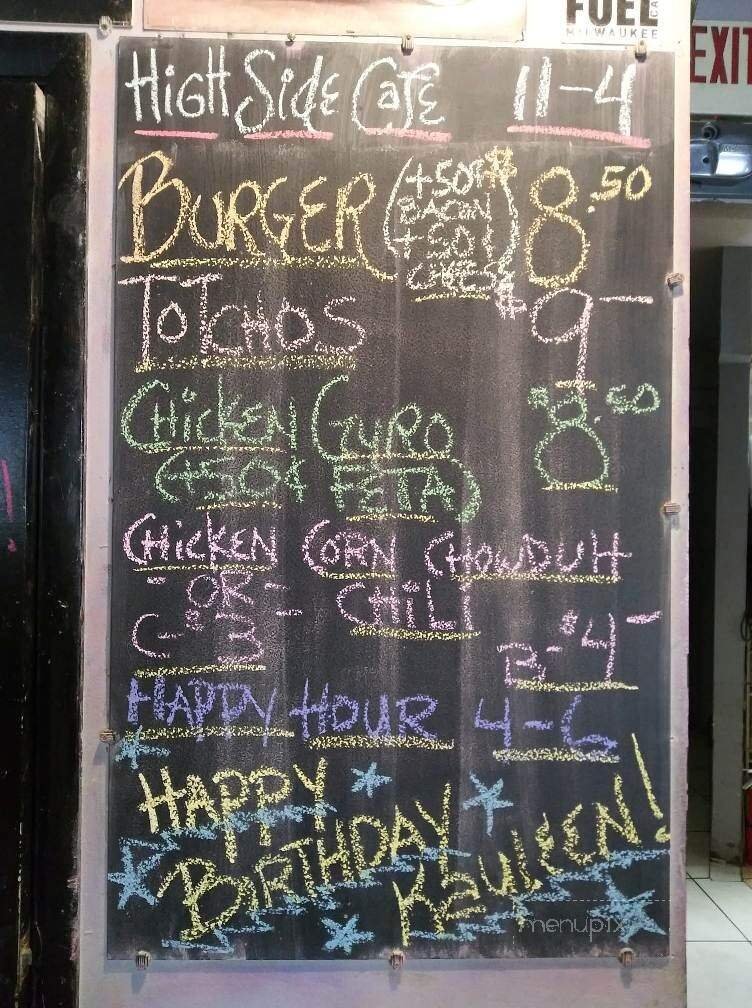 FUEL
CAFE
MILWAUKEE
EXIT
HIGH SIDE CAFE 11-4
BURGER (+50¢ BACIN +50¢ CHEESE) 8.50
TOTCHOS $9-
CHICKEN GYRO $8.50
(+50¢ FETA)
CHICKEN CORN CHOWDUH
-OR- CHILI
C-$3 B-$4-
HAPPY HOUR 4-6
HAPPY
BIRTHDAY
KAYLEEN!
menupix